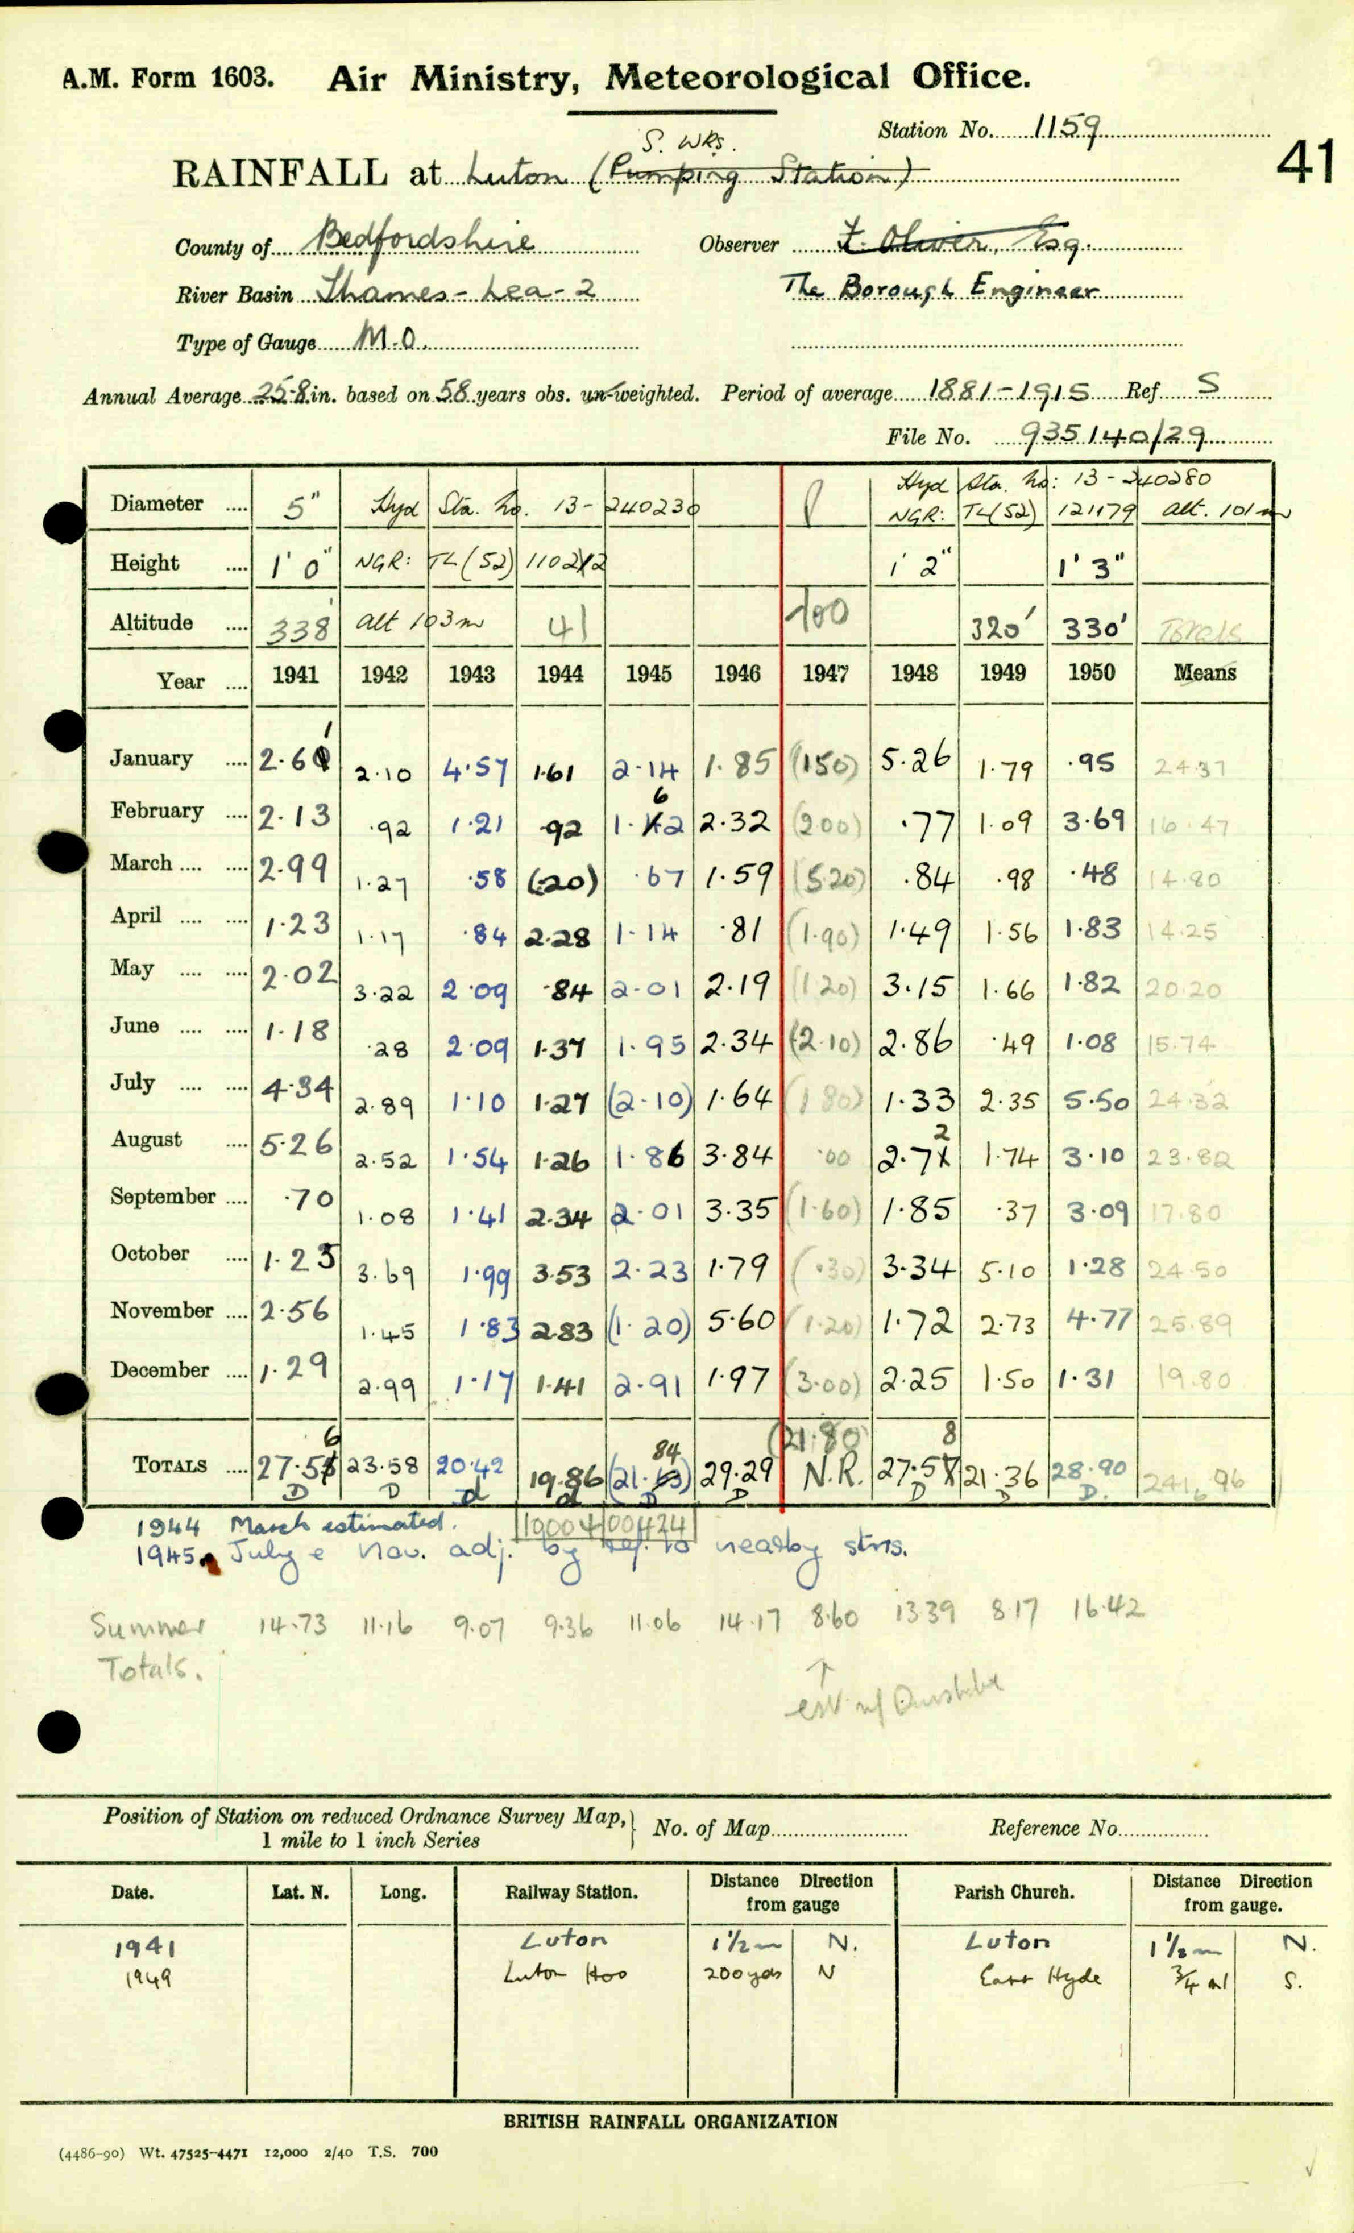 A.M. Form 1603. Air Ministry, Meteorological Office.
Station No. 1159
41
S. Wks.
RAINFALL at Luton (Pumping Station)
County of Bedfordshire Observer F. Oliver, Esq.
River Basin Thames - Lea - 2 The Borough Engineer
Type of Gauge M.O.
Annual Average 25.8 in. based on 58 years obs. un-weighted. Period of average 1881-1915 Ref S
File No. 935140/29
Diameter 5" Hyd Sta. No. 13 - 240230 Hyd Sta. No: 13 - 240280
NGR: TL(52) 121179 alt. 101m
Height 1' 0" NGR: TL (52) 1 2" 1' 3"
Altitude 338' alt 103m 41 320' 330' Totals
Year 1941 1942 1943 1944 1945 1946 1947 1948 1949 1950 Means
January 2.61 2.10 4.57 1.61 2.14 1.85 (1.50) 5.26 1.79 .95 24.37
February 2.13 .92 1.21 .92 1.62 2.32 (2.00) .77 1.09 3.69 16.47
March 2.99 1.27 .58 (.20) .67 1.59 (5.20) .84 .98 .48 14.80
April 1.23 1.17 .84 2.28 1.14 .81 (1.90) 1.49 1.56 1.83 14.25
May 2.02 3.22 2.09 .84 2.01 2.19 (1.20) 3.15 1.66 1.82 20.20
June 1.18 .28 2.09 1.37 1.95 2.34 (2.10) 2.86 .49 1.08 15.74
July 4.34 2.89 1.10 1.27 (2.10) 1.64 (1.80) 1.33 2.35 5.50 24.32
August 5.26 2.52 1.54 1.26 1.86 3.84 .00 2.72 1.74 3.10 23.82
September .70 1.08 1.41 2.34 2.01 3.35 (1.60) 1.85 .37 3.09 17.80
October 1.25 3.69 1.99 3.53 2.23 1.79 (.30) 3.34 5.10 1.28 24.50
November 2.56 1.45 1.83 2.83 (1.20) 5.60 (1.20) 1.72 2.73 4.77 25.89
December 1.29 2.99 1.17 1.41 2.91 1.97 (3.00) 2.25 1.50 1.31 19.80
(21.80)
TOTALS 27.56 23.58 20.42 19.86 (21.84) 29.29 N.R. 27.58 21.36 28.90 241.96
D D d d D D D D D.
1944 March estimated. 19004 00424
1945 July & Nov. adj. by ref. to nearby stns.
Summer 14.73 11.16 9.07 9.36 11.06 14.17 8.60 13.39 8.17 16.42
Totals.
Position of Station on reduced Ordnance Survey Map, 1 mile to 1 inch Series No. of Map Reference No.
Date. Lat. N. Long. Railway Station. Distance Direction from gauge Parish Church. Distance Direction from gauge.
1941 Luton 1½m N. Luton 1½m N.
1949 Luton Hoo 200yds N East Hyde ¾ ml S.
BRITISH RAINFALL ORGANIZATION
(4486-90) Wt. 47525-4471 12,000 2/40 T.S. 700